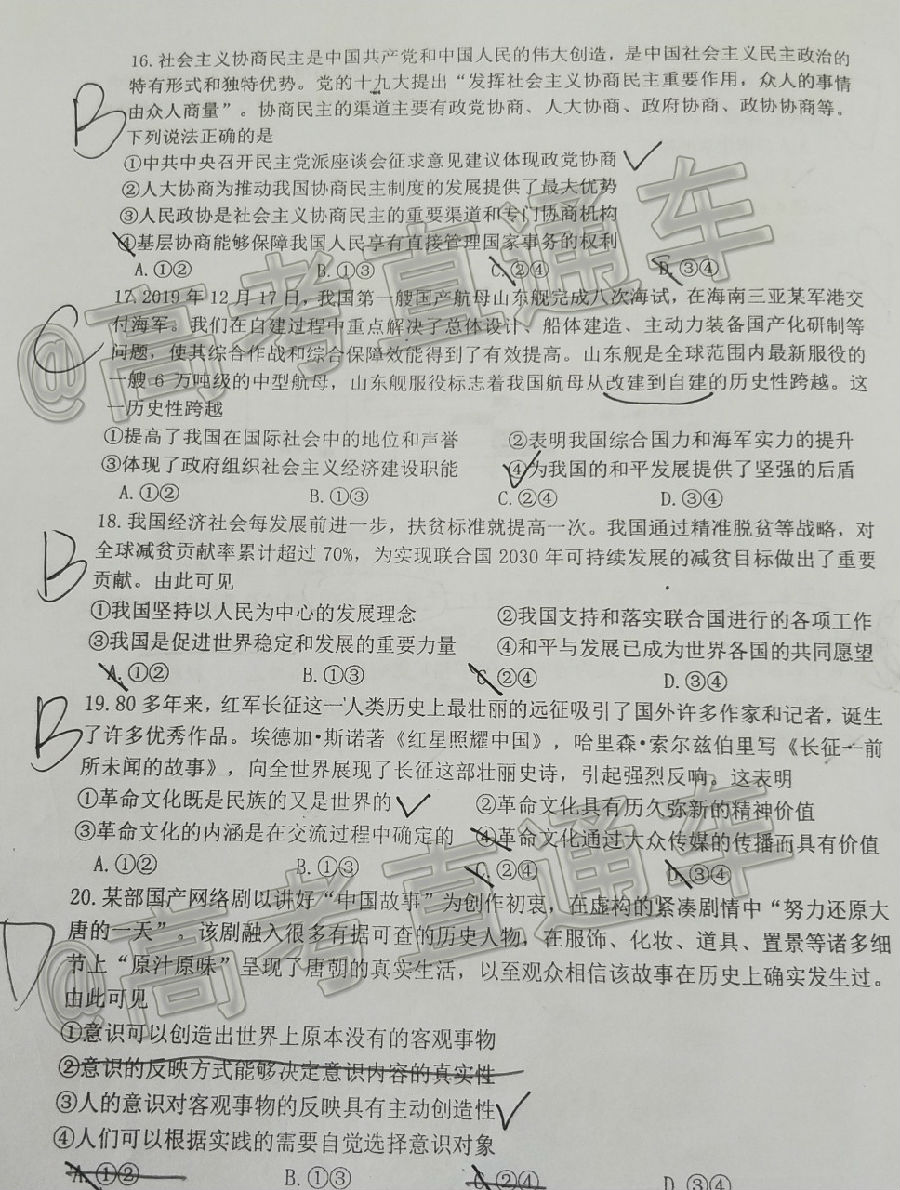 16.社会主义协商民主是中国共产党和中国人民的伟大创造，是中国社会主义民主政治的
特有形式和独特优势。党的十九大提出“发挥社会主义协商民主重要作用，众人的事情
由众人商量”。协商民主的渠道主要有政党协商、人大协商、政府协商、政协协商等。
B
下列说法正确的是
①中共中央召开民主党派座谈会征求意见建议体现政党协商
②人大协商为推动我国协商民主制度的发展提供了最大优势
③人民政协是社会主义协商民主的重要渠道和专门协商机构
④基层协商能够保障我国人民享有直接管理国家事务的权利
A.①② B.①③ C.②④ D.③④
17.2019年12月17日，我国第一艘国产航母山东舰完成八次海试，在海南三亚某军港交
付海军。我们在自建过程中重点解决了总体设计、船体建造、主动力装备国产化研制等
C
问题，使其综合作战和综合保障效能得到了有效提高。山东舰是全球范围内最新服役的
一艘6万吨级的中型航母，山东舰服役标志着我国航母从改建到自建的历史性跨越。这
一历史性跨越
①提高了我国在国际社会中的地位和声誉 ②表明我国综合国力和海军实力的提升
③体现了政府组织社会主义经济建设职能 ④为我国的和平发展提供了坚强的后盾
A.①② B.①③ C.②④ D.③④
18.我国经济社会每发展前进一步，扶贫标准就提高一次。我国通过精准脱贫等战略，对
全球减贫贡献率累计超过70%，为实现联合国2030年可持续发展的减贫目标做出了重要
B
贡献。由此可见
①我国坚持以人民为中心的发展理念 ②我国支持和落实联合国进行的各项工作
③我国是促进世界稳定和发展的重要力量 ④和平与发展已成为世界各国的共同愿望
A.①② B.①③ C.②④ D.③④
19.80多年来，红军长征这一人类历史上最壮丽的远征吸引了国外许多作家和记者，诞生
B
了许多优秀作品。埃德加·斯诺著《红星照耀中国》，哈里森·索尔兹伯里写《长征—前
所未闻的故事》，向全世界展现了长征这部壮丽史诗，引起强烈反响。这表明
①革命文化既是民族的又是世界的 ②革命文化具有历久弥新的精神价值
③革命文化的内涵是在交流过程中确定的 ④革命文化通过大众传媒的传播而具有价值
A.①② B.①③ C.②④ D.③④
20.某部国产网络剧以讲好“中国故事”为创作初衷，在虚构的紧凑剧情中“努力还原大
唐的一天”。该剧融入很多有据可查的历史人物，在服饰、化妆、道具、置景等诸多细
D
节上“原汁原味”呈现了唐朝的真实生活，以至观众相信该故事在历史上确实发生过。
由此可见
①意识可以创造出世界上原本没有的客观事物
②意识的反映方式能够决定意识内容的真实性
③人的意识对客观事物的反映具有主动创造性
④人们可以根据实践的需要自觉选择意识对象
A.①② B.①③ C.②④ D.③④
@高考直通车
@高考直通车